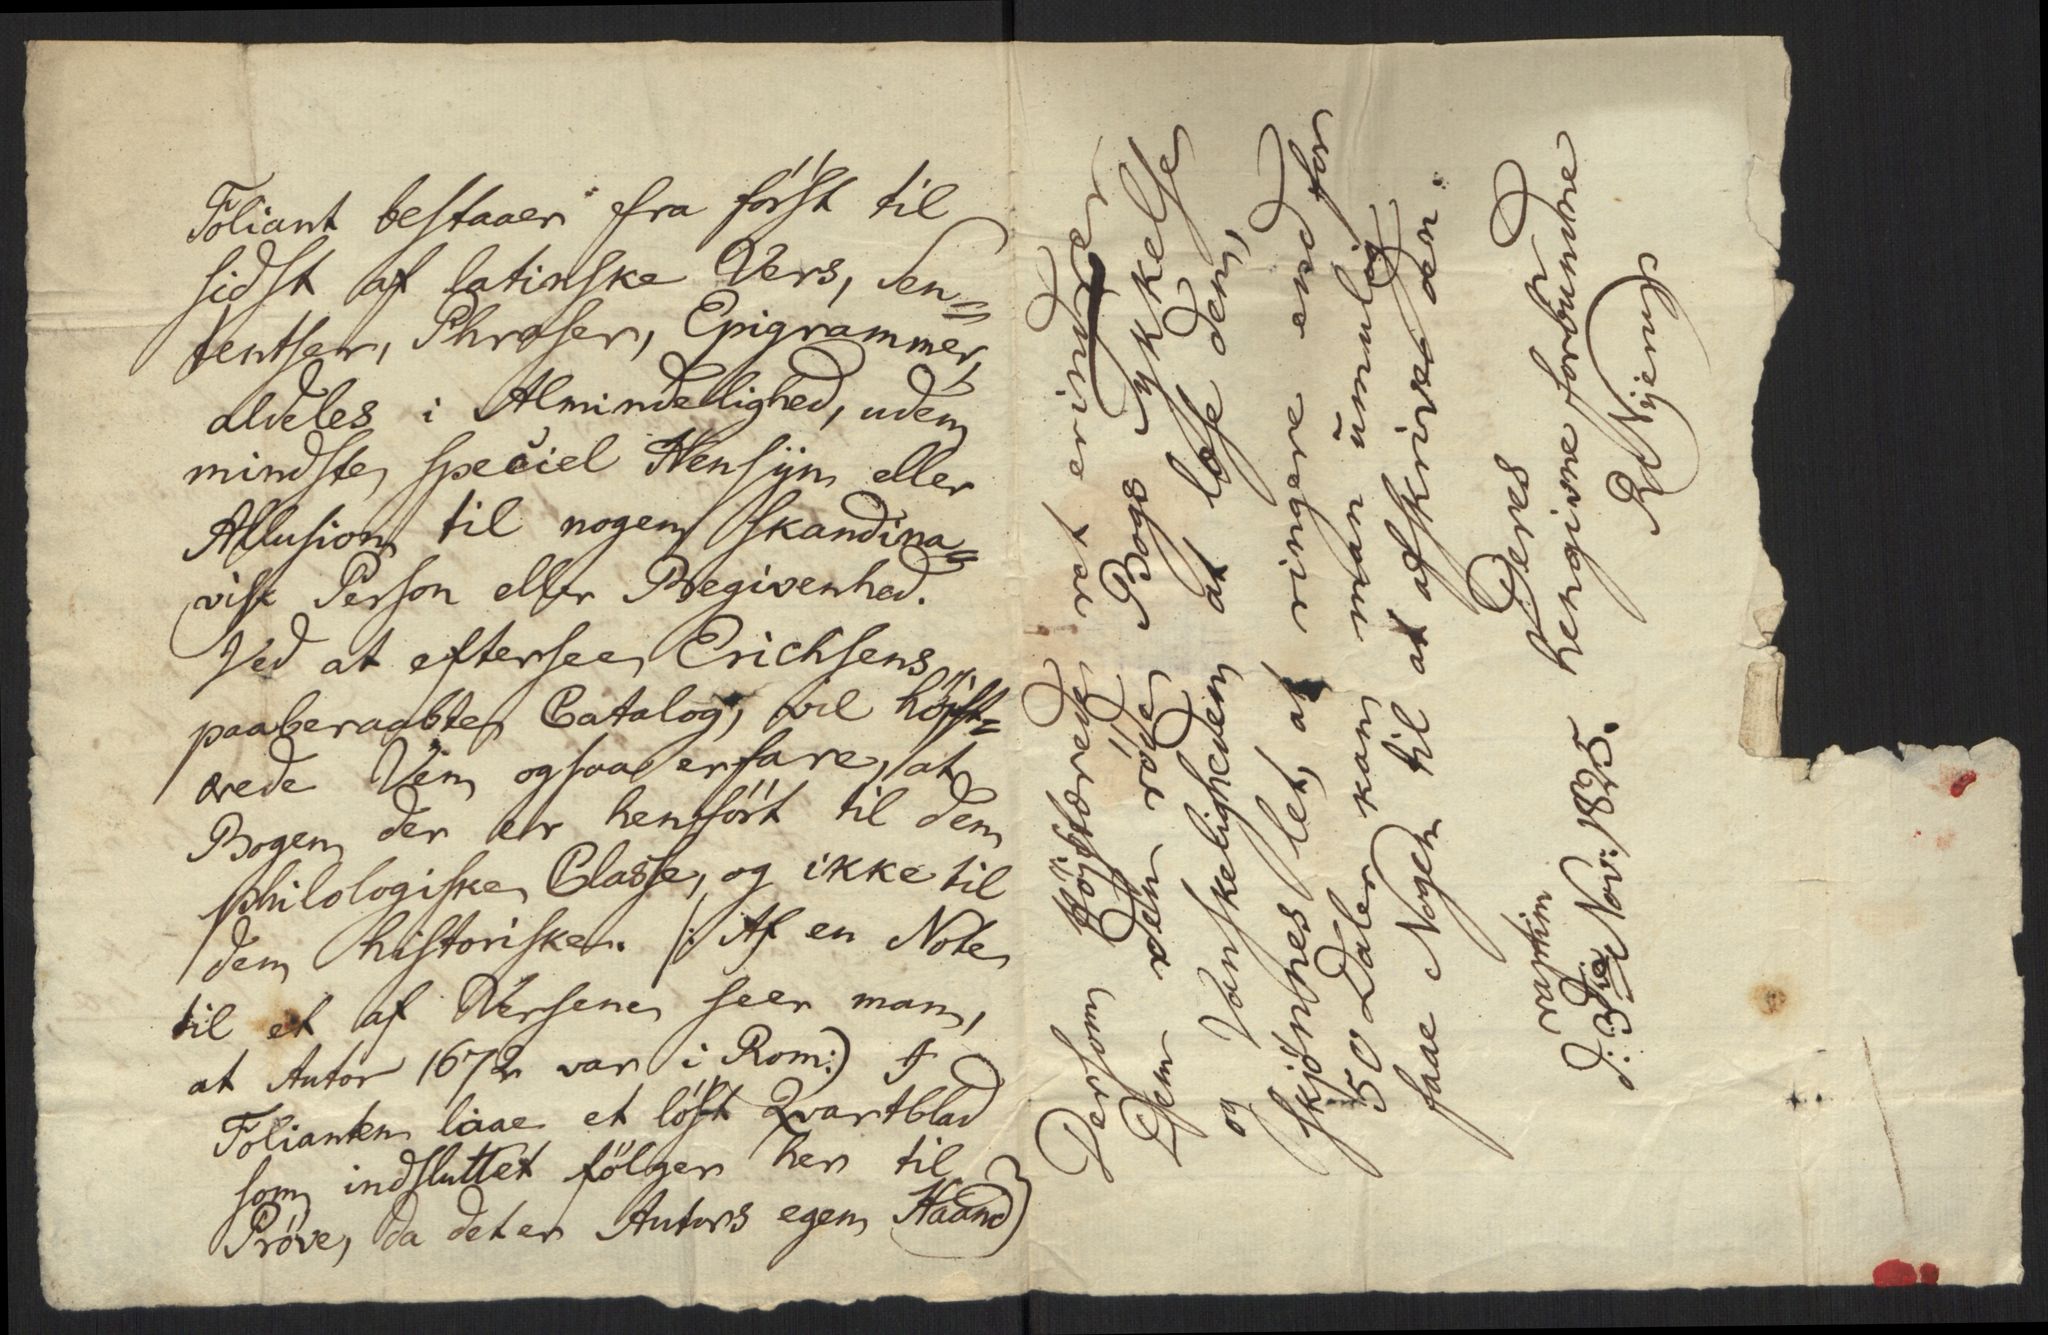 Foliant bestaaer fra først til
sidst af latinske Vers, Sen=
tentser, Phraser, Epigrammer,
aldeles i Almindelighed, uden
mindste speciel Hensÿn eller
Allusion til nogen skandina=
visk Person eller Begivenhed.
Ved at eftersee Erichsens
paaberaabte Catalog, vil höjst=
ærede Ven ogsaa erfare, at
Bogen der er henfört til den
philologiske Classe, og ikke til
den historiske. /: Af en Note
til et af Versene seer man,
at Autor 1672 var i Rom:) I
Folianten laae et löst Qvartblad
som indsluttet fölger her til
Pröve, da det er Autors egen Haand
Dersom Höjstærede ret erindrer
Dem den röde Bogs Tykkelse
og Vanskeligheden at læse dem,
skjönnes let, at ringere end for
50 Daler kan man ūmulig
faae Nogen til at afskrive den.
Deres
hengivne forbundne
R Nÿerup
raptim
d: 3die Nov: 1825.